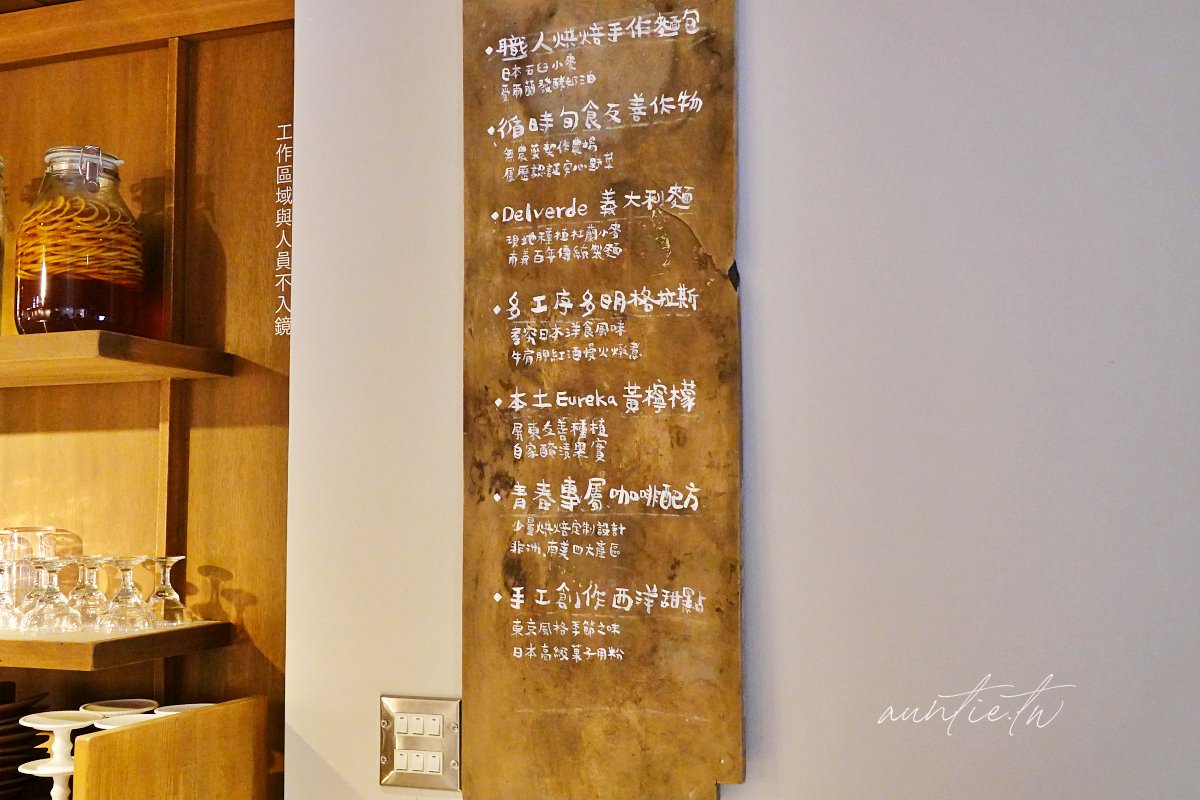 工作區域與人員不入鏡
職人烘焙手作麵包
日本石臼小麥
愛雨蘭發酵奶油
循時旬食友善作物
無農藥契作農場
履歷認証安心野菜
Delverde 義大利麵
現地種植杜蘭小麥
南義百年傳統製麵
多工序多明格拉斯
考究日本洋食風味
牛肩胛紅酒慢火燉煮
本土Eureka黃檸檬
屏東友善種植
自家醃漬果實
青春專屬咖啡配方
少量烘焙定制設計
非洲,南美四大產區
手工創作西洋甜點
東京風格季節之味
日本高級菓子用粉
auntie.tw